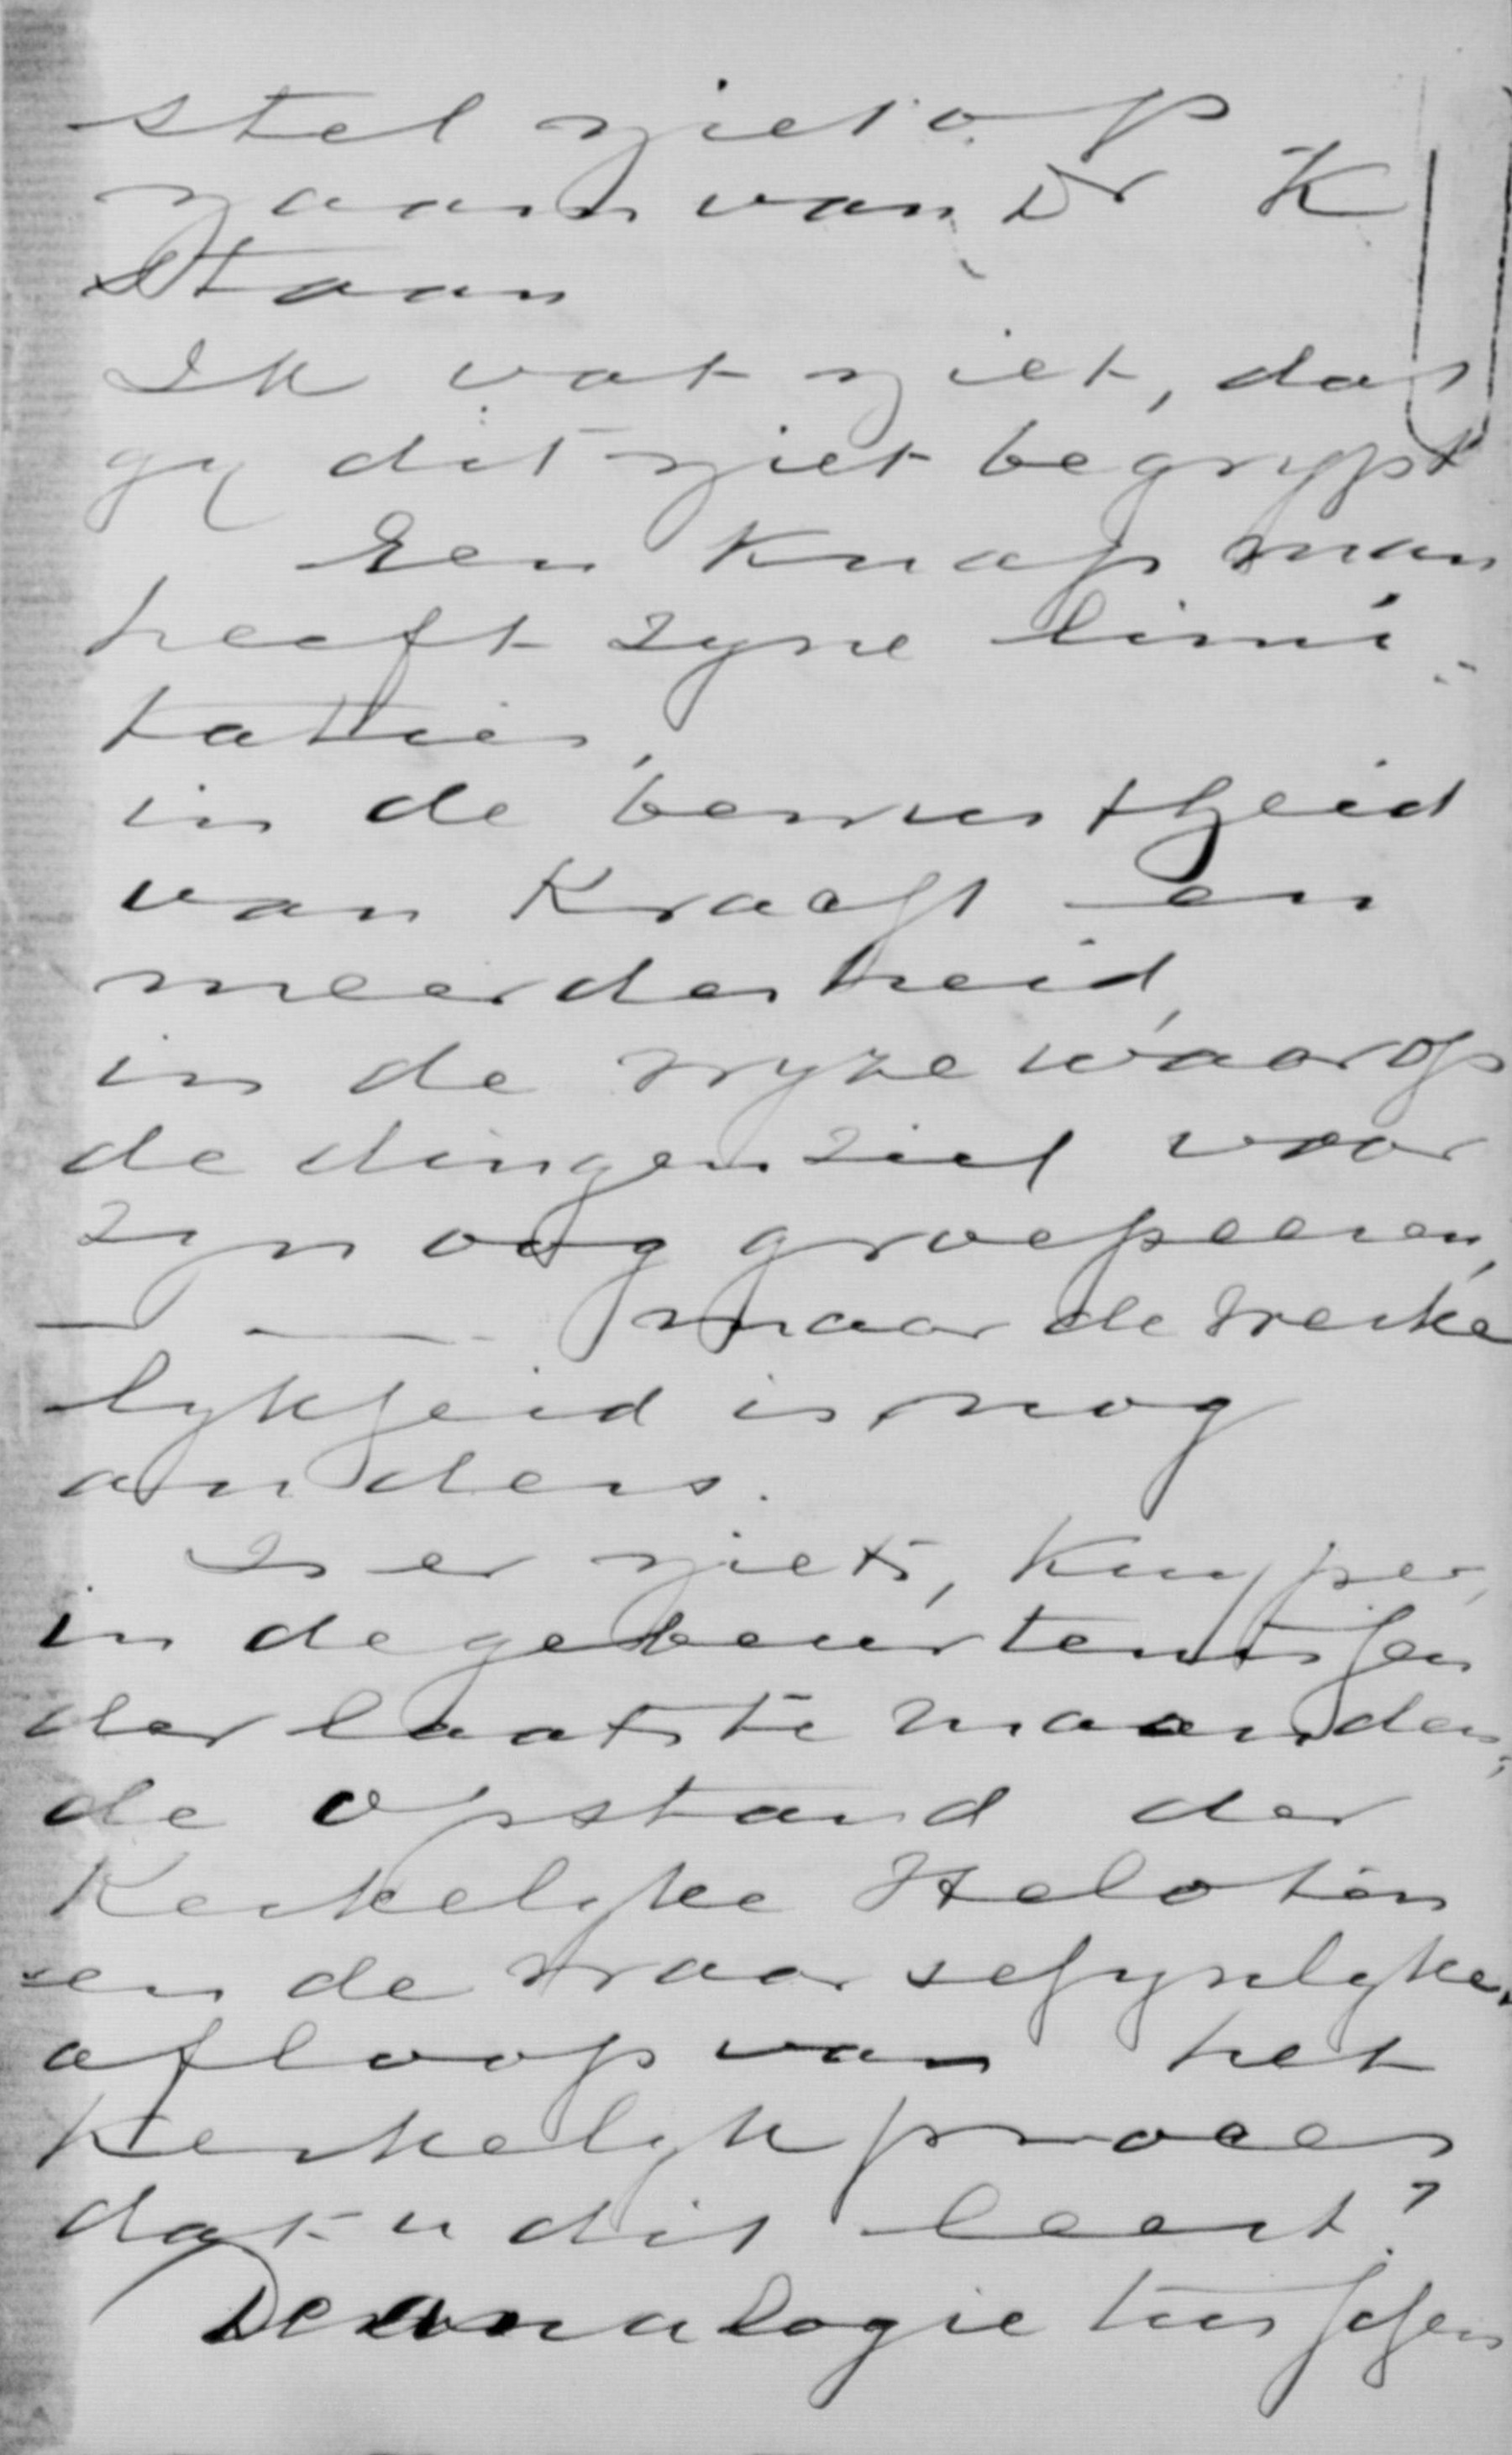 stel niet op
naam van Dr K
staan
Ik vat niet, dat
gy dit niet begrypt
Een knap man
heeft zyne limi-
taties,
in de bewustheid
van kracht en
meerderheid,
in de wyze waarop
de dingen zich voor
zyn oog groepeeren,
— — maar de werke
lykheid is nog
anders.
Is er niets, Kuyper,
in de gebeurtenissen
der laatste maanden,
de opstand der
Kerkelyke Heloten
en de waarschynlyke
afloop van het
Kerkelyk proces
dat u dit leert?
De analogie tusschen